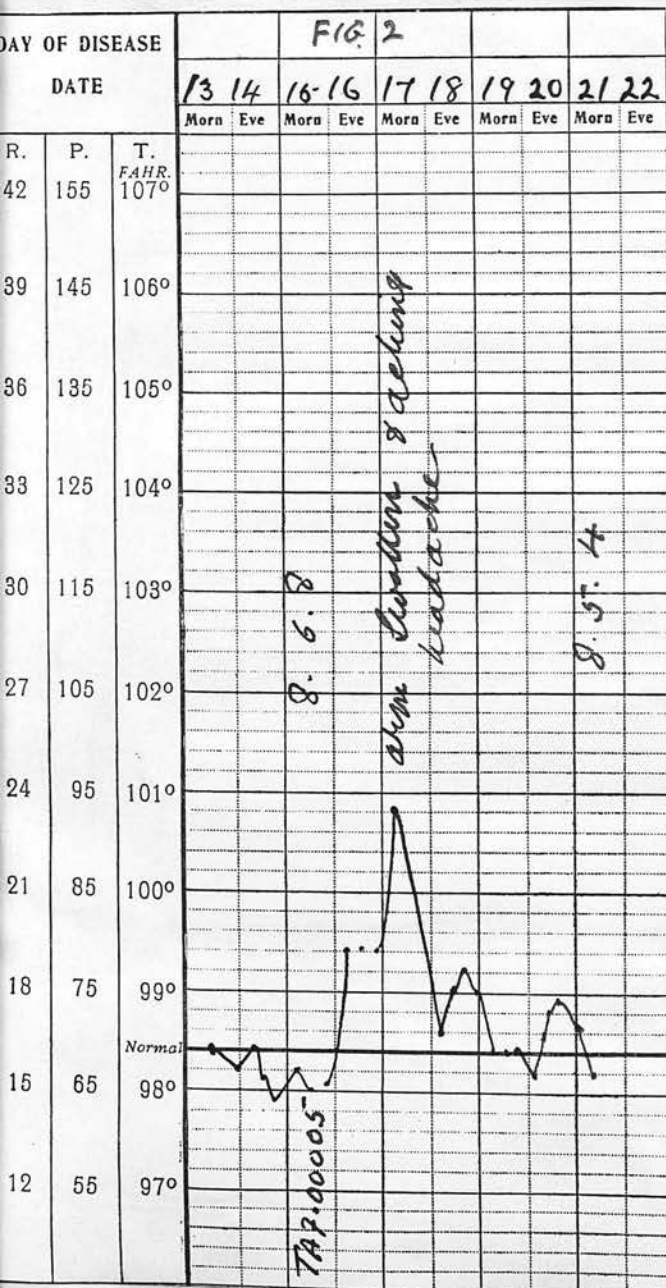 DAY OF DISEASE
FIG 2
DATE
13 14 15-16 17 18 19 20 21 22
Morn Eve Morn Eve Morn Eve Morn Eve Morn Eve
R. P. T.
FAHR.
42 155 107°
39 145 106°
36 135 105°
33 125 104°
30 115 103°
27 105 102°
24 95 101°
21 85 100°
18 75 99°
Normal
15 65 98°
12 55 97°
8.6.8
arm swollen & aching
headache
8.5.4
.00005